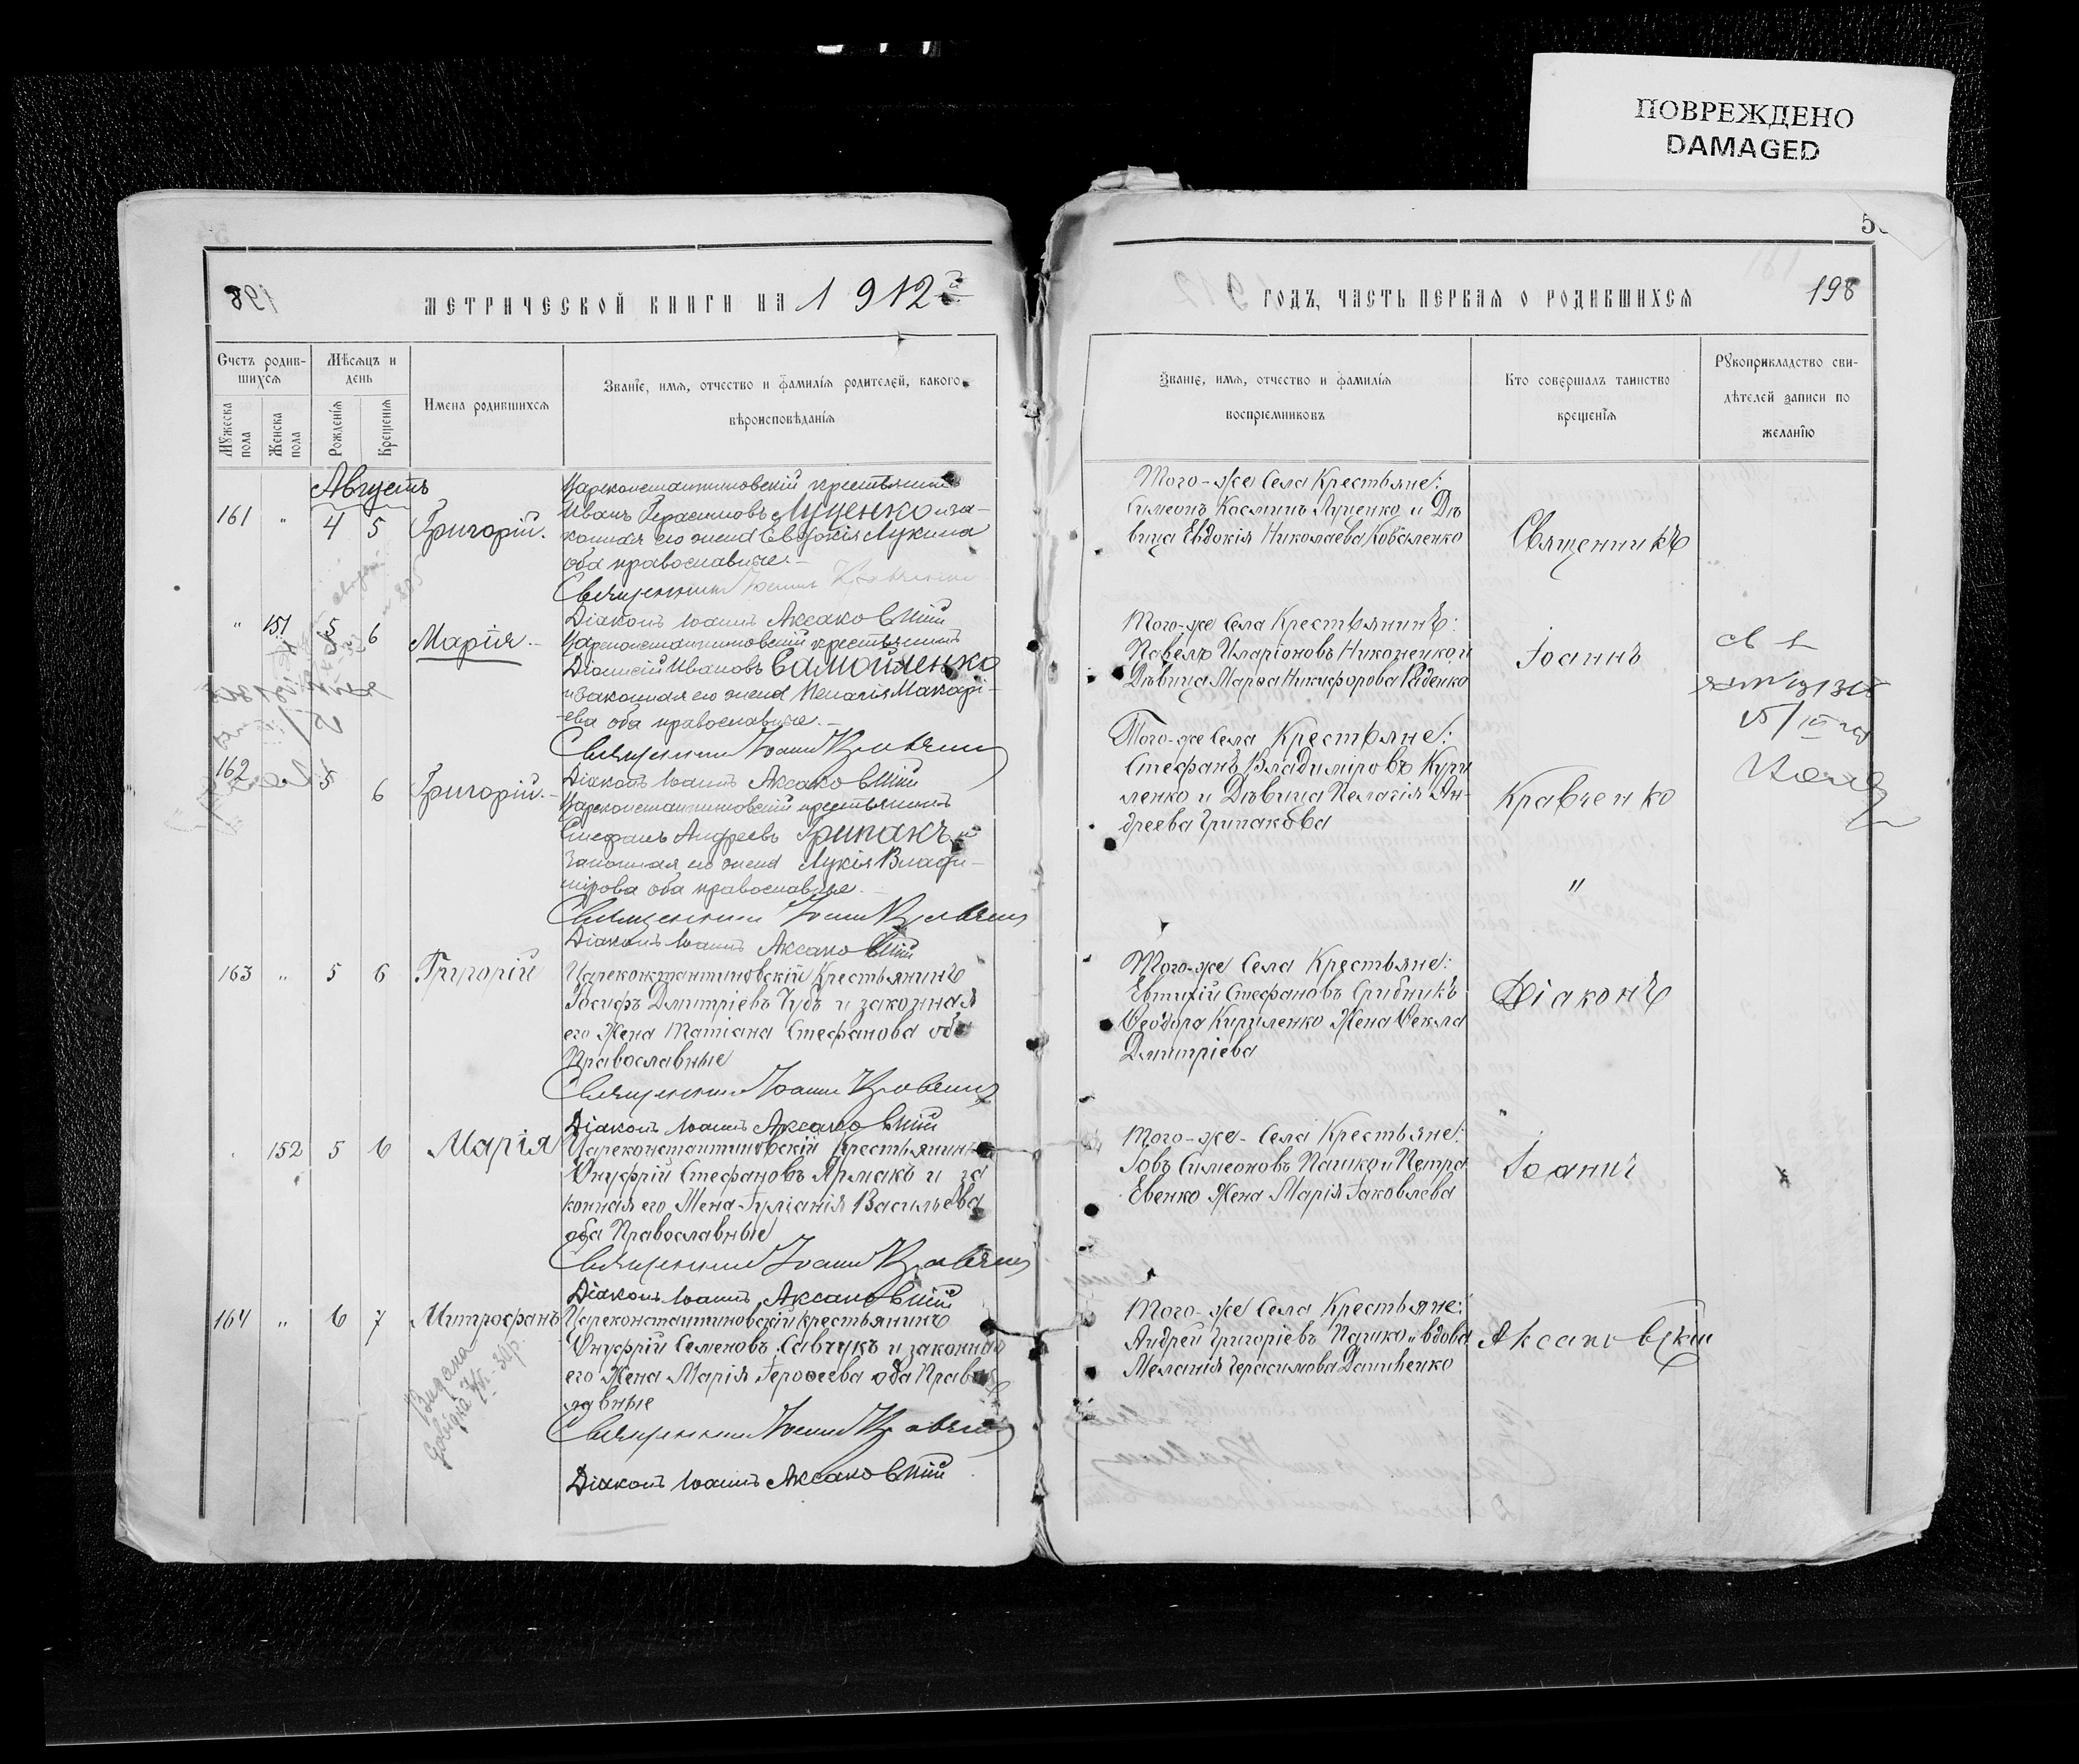 ПОВРЕЖДЕНО
DAMAGED
198
МЕТРИЧЕСКОЙ КНИГИ НА 1912 й
Счетъ родив-
шихся
Мужеска пола
Женска пола
Мѣсяцъ и
день
Рожденія
Крещенія
Имена родившихся
Званіе, имя, отчество и фамилія родителей, какого
вѣроисповѣданія
Августъ
161 " 4 5 Григорій.
Цареконстантиновскій крестьянинъ
Иванъ Герасимовъ Луценко и за-
конная его жена Евдокія Лукина
оба православные.-
Священникъ Іоаннъ Кравченко
Діаконъ Іоаннъ Аксаковскій
" 151 5 6 Марія.-
Цареконстантиновскій крестьянинъ
Діонисій Ивановъ Самойленко
и законная его жена Пелагія Макарі-
-ева оба православные.-
Священникъ Іоаннъ Кравченко
Діаконъ Іоаннъ Аксаковскій
162 5 6 Григорій.-
Цареконстантиновскій крестьянинъ
Стефанъ Андреевъ Грипакъ и
законная его жена Лукія Влади-
мірова оба православные.-
Священникъ Іоаннъ Кравченко
Діаконъ Іоаннъ Аксаковскій
163 " 5 6 Григорій
Цареконстантиновскій Крестьянинъ
Іосифъ Дмитріевъ Чубъ и законная
его Жена Татіана Стефанова оба
Православные
Священникъ Іоаннъ Кравченко
Діаконъ Іоаннъ Аксаковскій
152 5 6 Марія
Цареконстантиновскій Крестьянинъ
Онуфрій Стефановъ Ярмакъ и за
конная его Жена Іуліанія Васильева
оба Православные
Священникъ Іоаннъ Кравченко
Діаконъ Іоаннъ Аксаковскій
164 " 6 7 Митрофанъ
Цареконстантиновскій крестьянинъ
Онуфрій Семеновъ Савчукъ и законная
его Жена Марія Іерофеева оба Правос
лавные
Священникъ Іоаннъ Кравченко
Діаконъ Іоаннъ Аксаковскій
Видана
довідка
198
ГОДЪ, ЧАСТЬ ПЕРВАЯ О РОДИВШИХСЯ
Званіе, имя, отчество и фамилія
воспріемниковъ
Кто совершалъ таинство
крещенія
Рукоприкладство сви-
дѣтелей записи по
желанію
Того-же Села Крестьяне:
Симеонъ Косминъ Луценко и Дѣ
вица Евдокія Николаева Коваленко
Священникъ
Того-же Села Крестьянинъ:
Павелъ Иларіоновъ Никоненко и
Дѣвица Марѳа Никифорова Руденко
Іоаннъ
Того-же Села Крестьяне:
Стефанъ Владиміровъ Кури
ленко и Дѣвица Пелагія Ан-
дреева Грипакова
Кравченко
"
Того-же Села Крестьяне:
Евтихій Стефановъ Срибникъ
Ѳеодора Кириленко Жена Ѳекла
Дмитріева
Діаконъ
Того-же-Села Крестьяне:
Іовъ Симеоновъ Пашко и Петра
Евенко Жена Марія Іаковлева
Іоаннъ
Того-же Села Крестьяне:
Андрей Григоріевъ Пашко и вдова
Меланія Герасимова Данченко
Аксаковскій